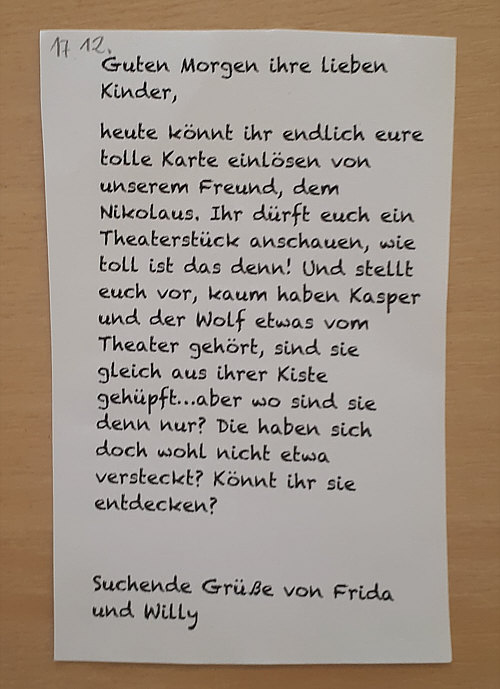 17 12.
Guten Morgen ihre lieben
Kinder,
heute könnt ihr endlich eure
tolle Karte einlösen von
unserem Freund, dem
Nikolaus. Ihr dürft euch ein
Theaterstück anschauen, wie
toll ist das denn! Und stellt
euch vor, kaum haben Kasper
und der Wolf etwas vom
Theater gehört, sind sie
gleich aus ihrer Kiste
gehüpft...aber wo sind sie
denn nur? Die haben sich
doch wohl nicht etwa
versteckt? Könnt ihr sie
entdecken?
Suchende Grüße von Frida
und Willy